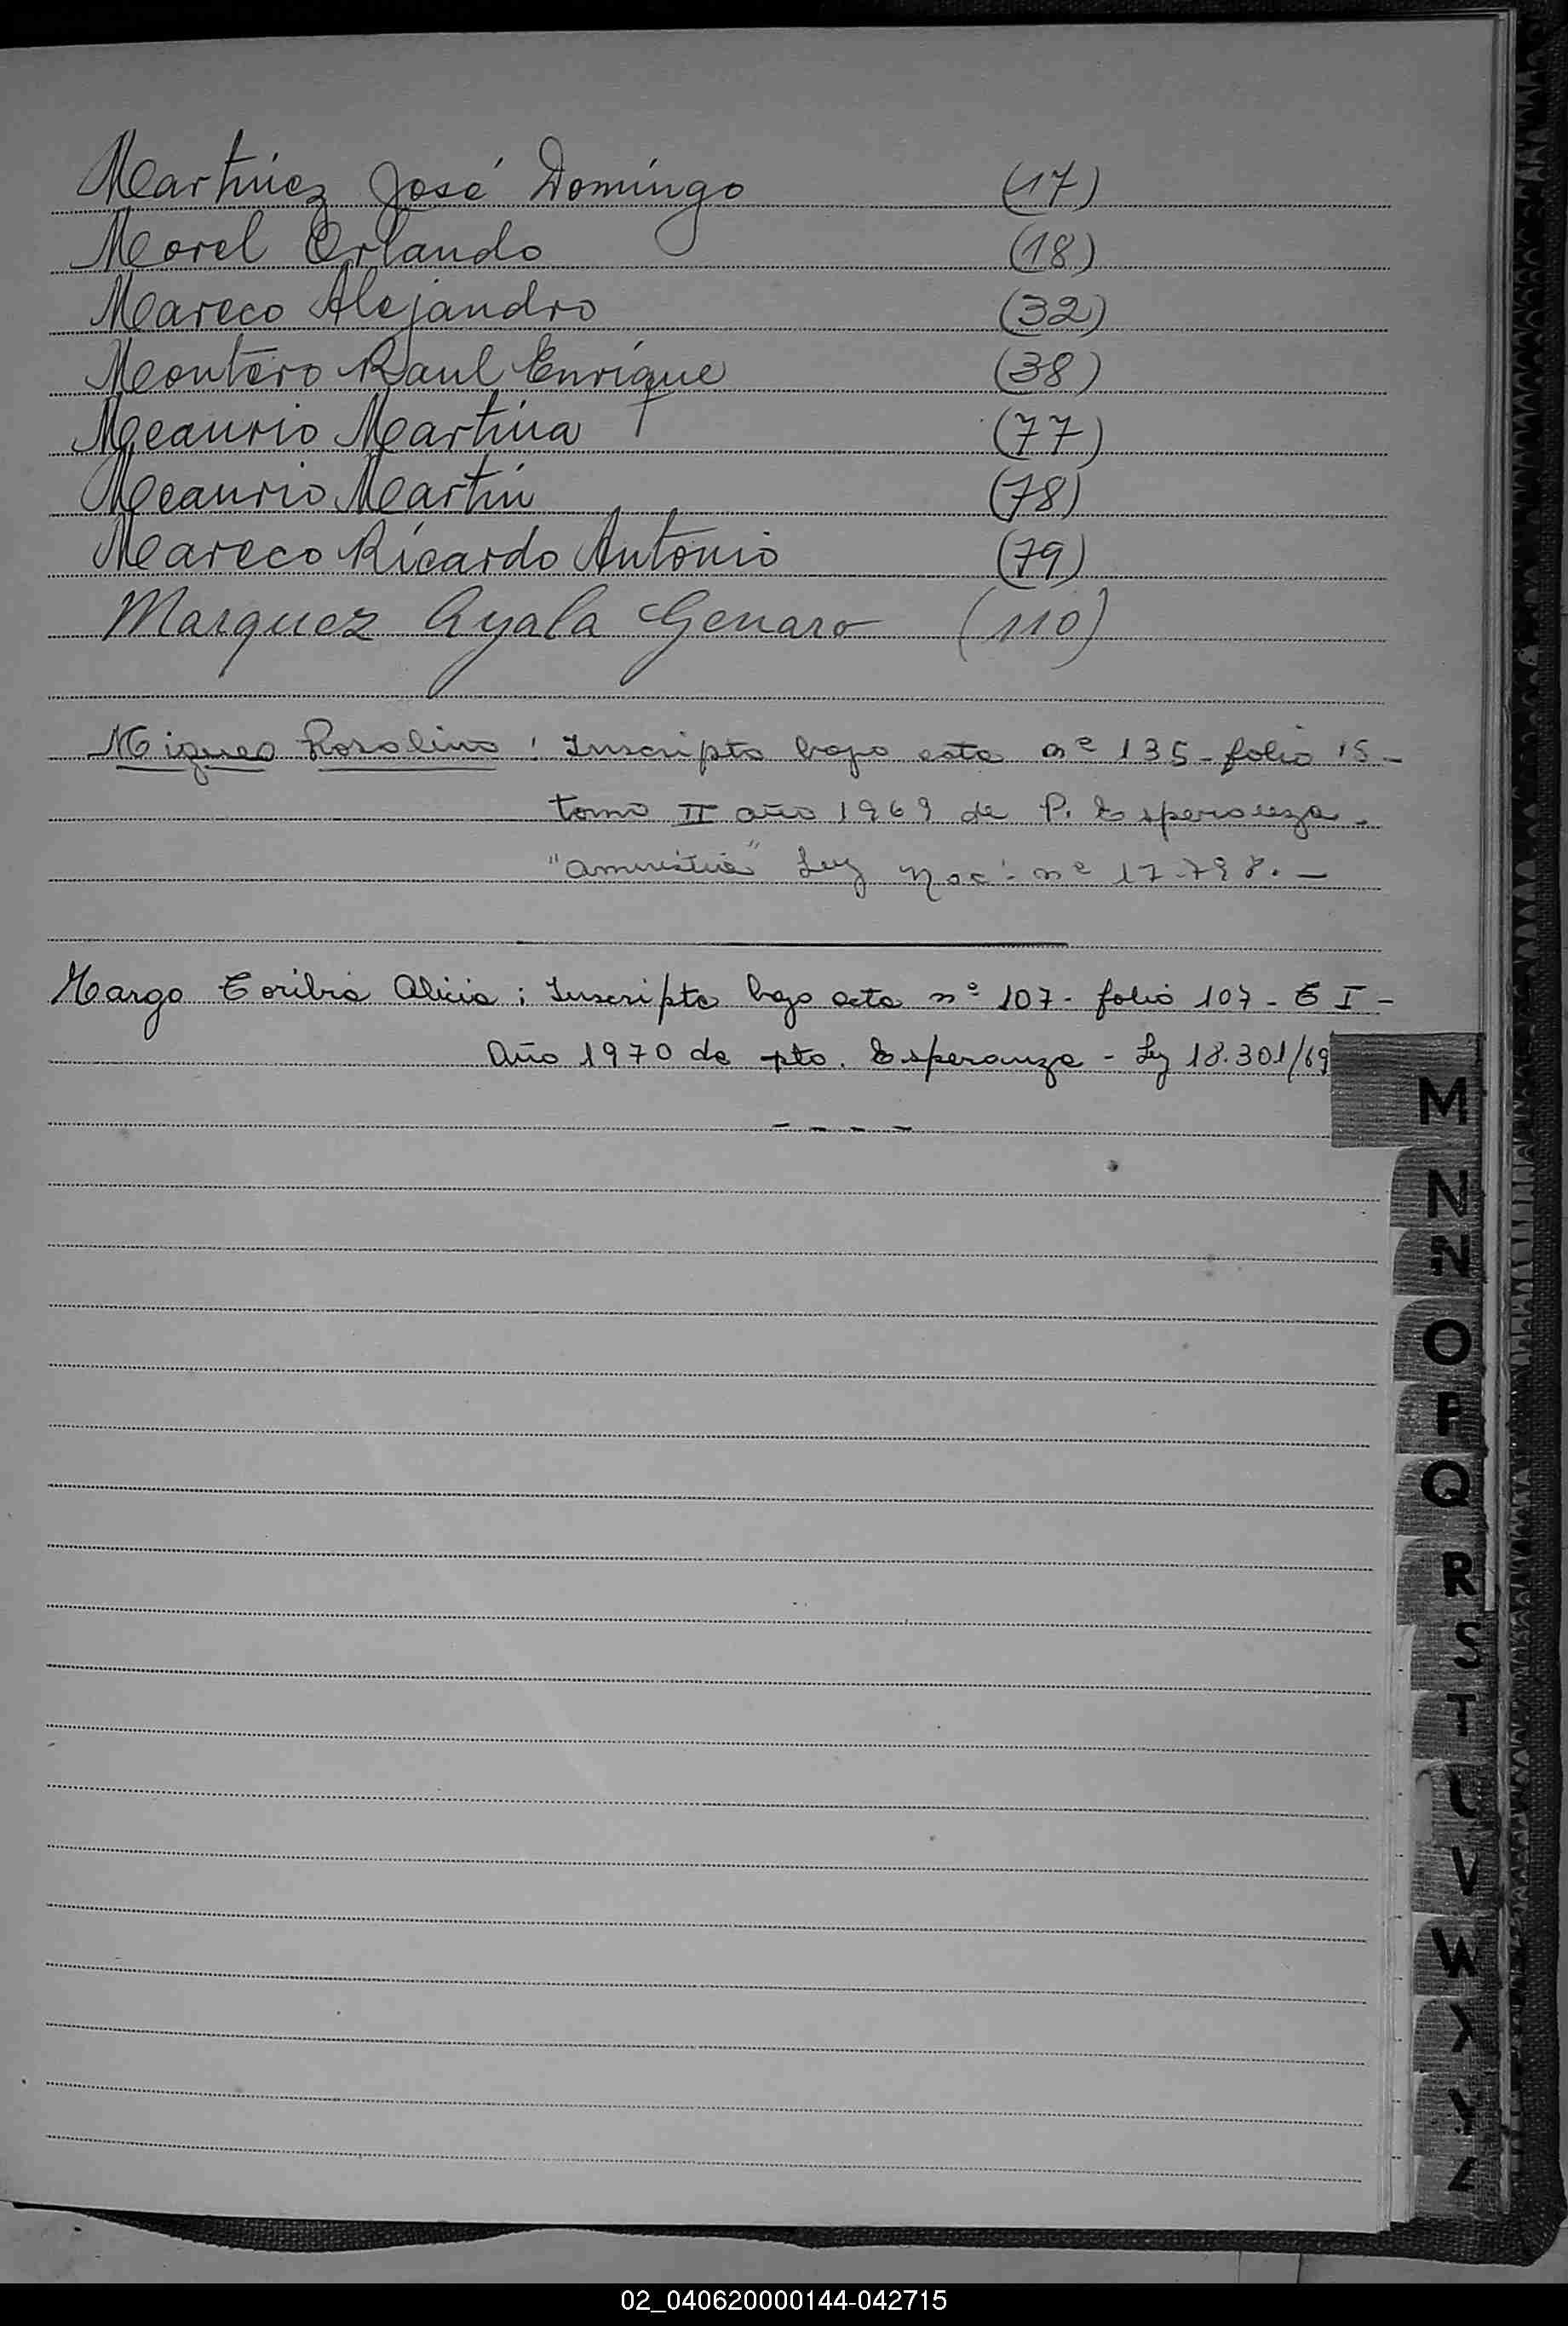 Martínez José Domingo (17)
Morel Orlando (18)
Mareco Alejandro (32)
Montero Raul Enrique (38)
Meaurio Martina (77)
Meaurio Martín (78)
Mareco Ricardo Antonio (79)
Marquez Ayala Genaro (110)
Rosolino : Inscripto bajo acta nº 135 - folio 15 -
tomo II año 1969 de P. Esperanza -
"amnistia" Ley Nac. nº 17.798. -
Margo Toribia Alicia : Inscripta bajo acta nº 107 - folio 107 - T I -
Año 1970 de pto. Esperanza - Ley 18.301/69
M
N
Ñ
O
P
Q
R
S
T
U
V
W
X
Y
Z
02_040620000144-042715